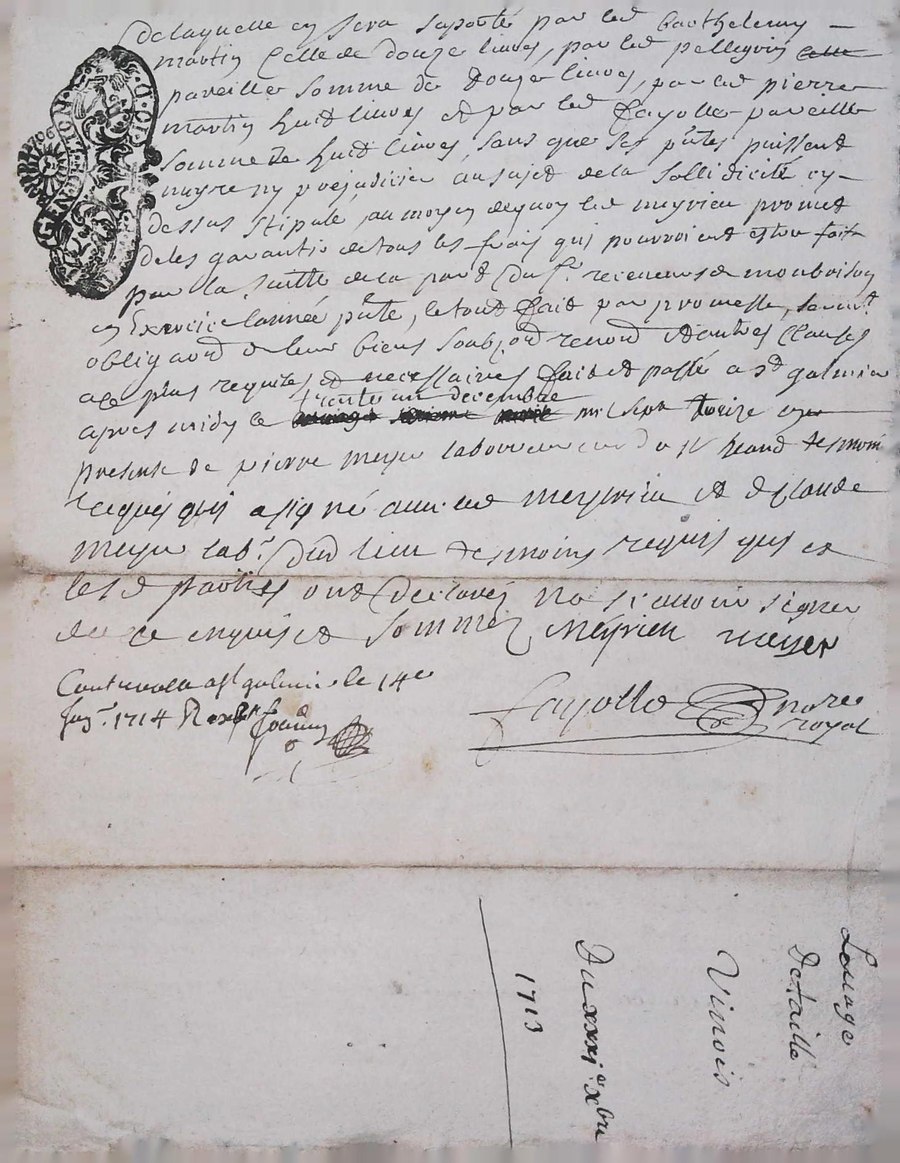 delaquelle en sera suporté par led Barthelemy
martin Celle de douze livres, par led pellegrin
pareille somme de douze livres, par led pierre
martin huit livres et par led fayolle pareille
somme de huit livres, sans que ses ptes puissent
nuyre ny prejudicier au sujet de la sollidicité cy
dessus stipulé, au moyen dequoy led meyrieu promet
de les garantir de tous les frais qui pourroient estre faits
par la suitte de la part du sr receveur de monbrison
en Exercice lannée pnte, le tout fait par promesse, sermt
obligaõn de leur biens soub,on renõn et autres Clauses
a ce plus requises et necessaires fait et passé a st galmier
trente un decembre
apres midy le mil sept treize en
presence de pierre meyer laboureur du
requis quy a signé avec led meyrieu et de Claude
meyer labr dud lieu tesmoins requis qui et
les d parties ont declarés ne scavoir signer
de ce enquis et sommez Meyrieu meyer
Controllé a st galmier le 14e
Janr 1714 R
fayolle nore
royal
GENERATION
Louage
Detaille
Vinois
Du xxxi e xbre
1713